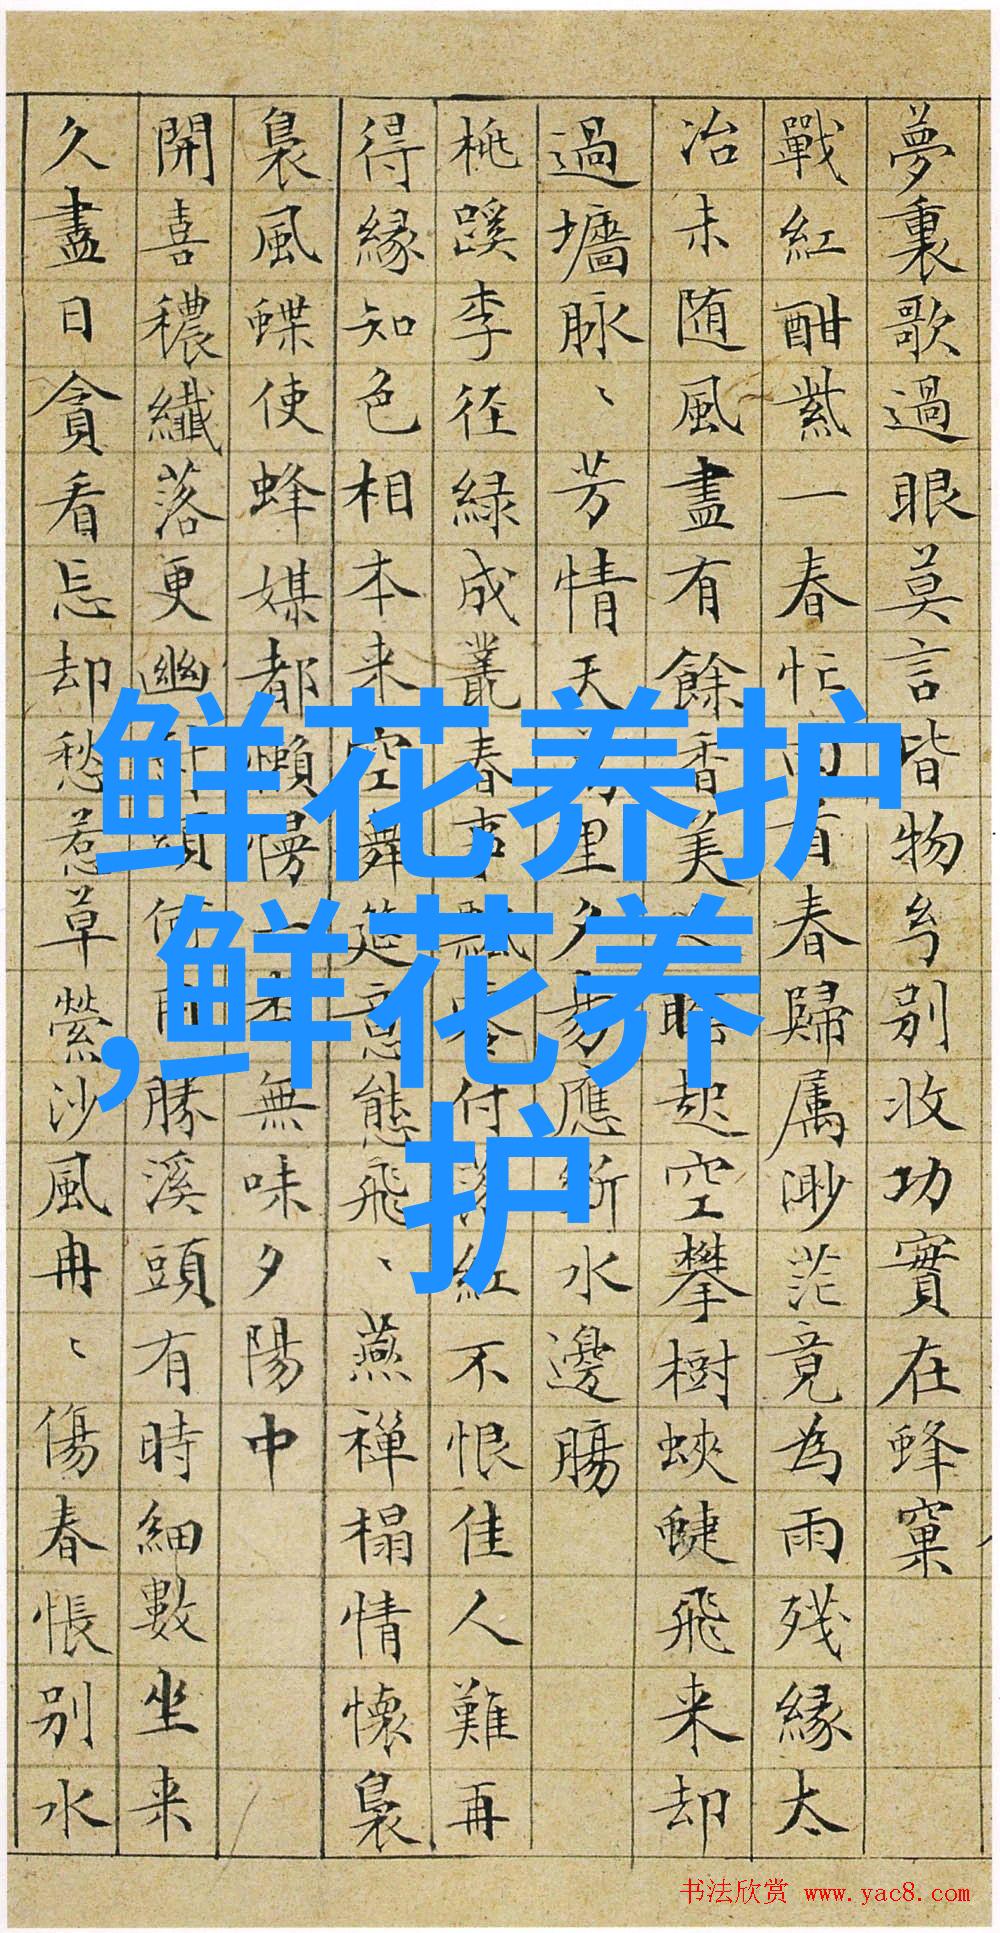 夢裏歌過眼莫言皆物兮别收功實在蜂窠
戰紅酣紫一春忙有春歸属渺茫竟為雨残縁太
冶未随風盡有餘香美睡起空攀樹蛺蜨飛来却
過墻脉、芳情天里夕應斷水邊腸
桃蹊李徑緑成叢春事飄零付落紅不恨佳人難再
得縁知色相本来空舞筵意態飛、燕禪榻情懷裊
裊風蝶使蜂媒都懶慢無味夕陽中
開喜穠纖落更幽頭何勝溪頭有時細數坐来
久盡日貪看忘却愁惹草縈沙風冉、傷春悵别水
鲜花养护
,鲜花养
护
书法欣赏 www.yac8.com